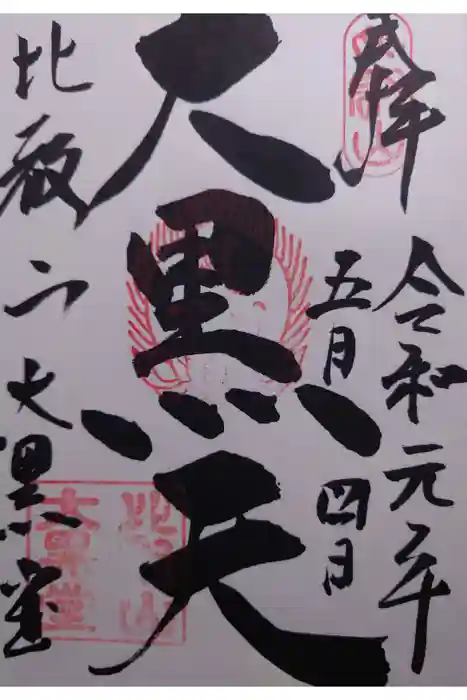 奉拝
令和元年
五月四日
大黒天
比叡山大黒堂
比叡山
大黒堂